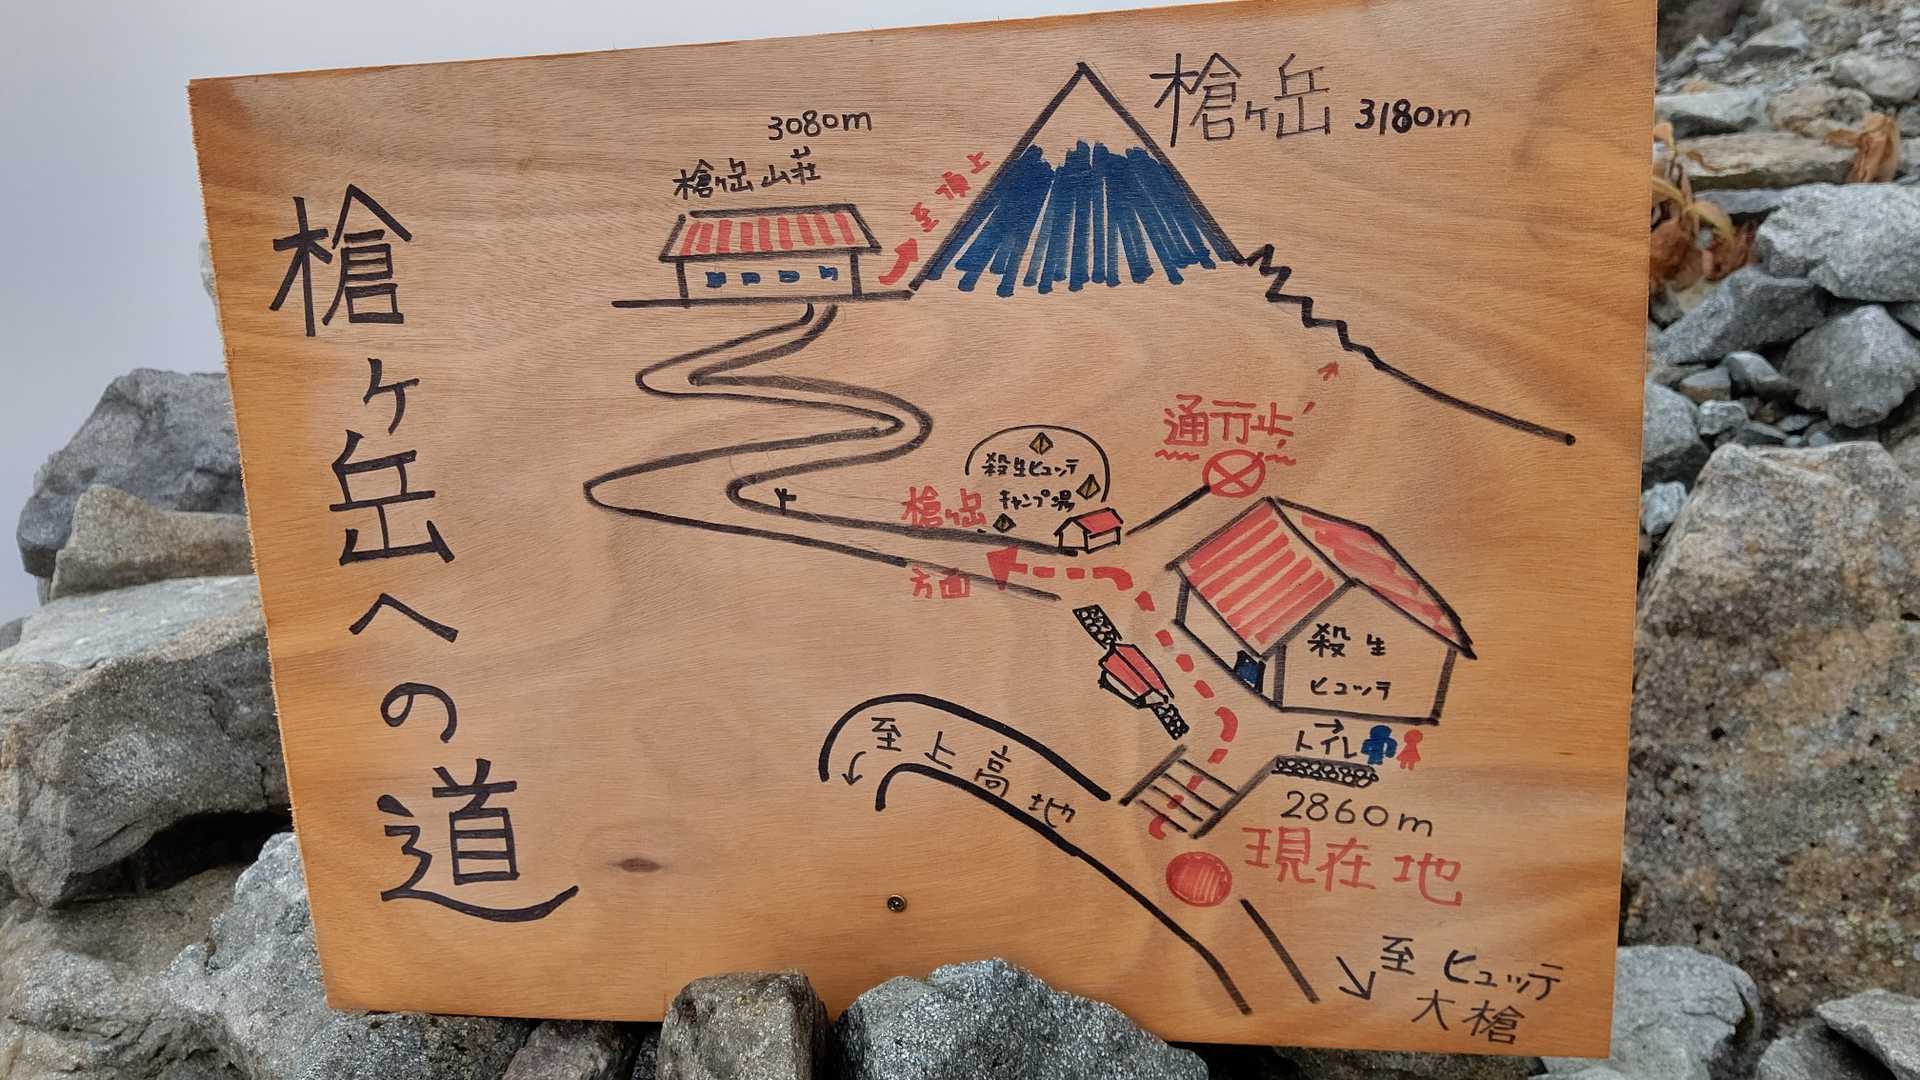 槍ヶ岳への道
槍ヶ岳 3180m
3080m
槍ヶ岳山荘
至頂上
通行止
殺生ヒュッテ
キャンプ場
槍ヶ岳
方面
殺生
ヒュッテ
→
トイレ
2860m
現在地
至上高地
至 ヒュッテ
大槍